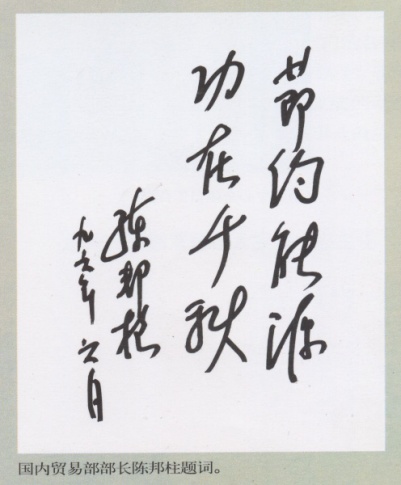 节约能源
功在千秋
陈邦柱
九六年六月
国内贸易部部长陈邦柱题词。